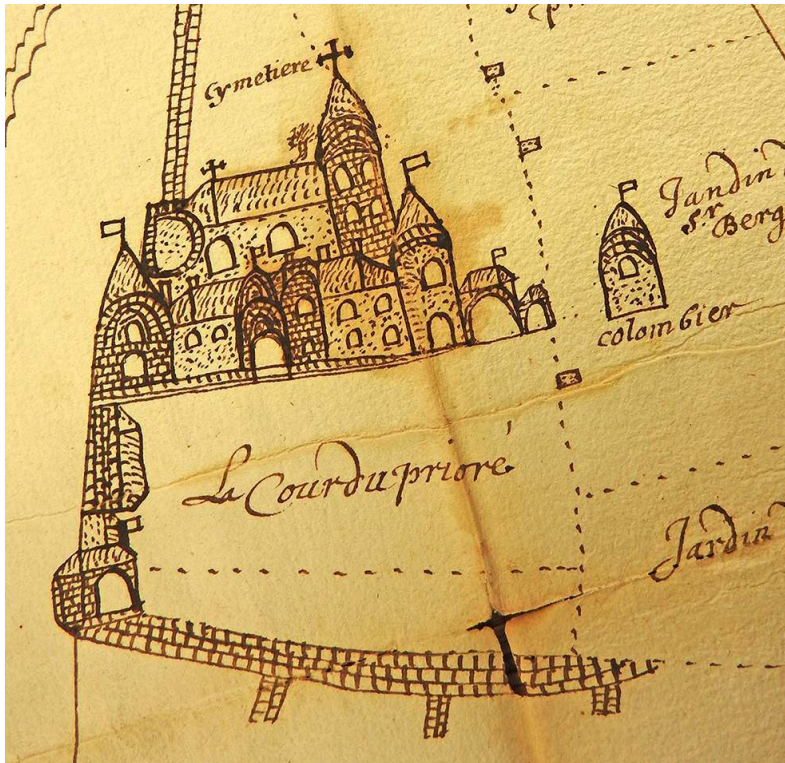 cymetiere
Jandin
sr Berg
colombier
La Cour du prioré
Jardin